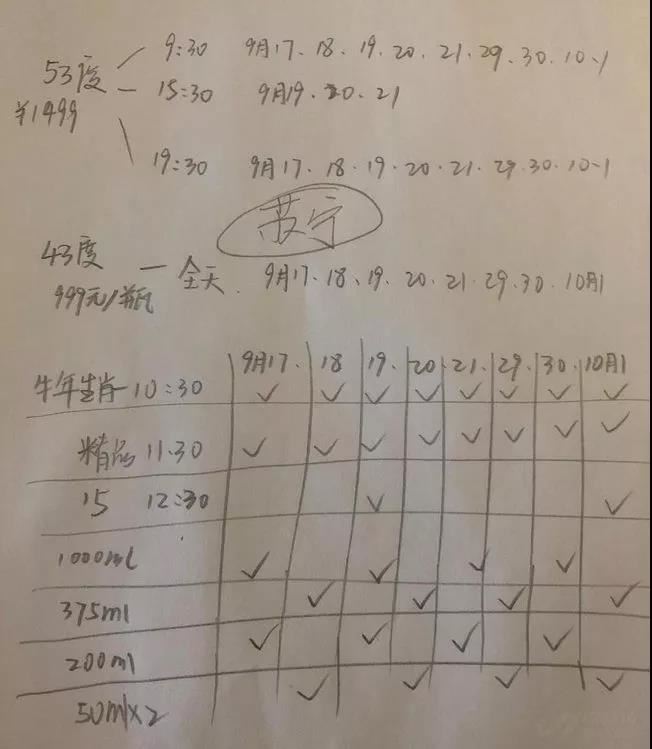 53度 9:30 9月17、18、19、20、21、29、30、10-1
¥1499 15:30 9月19、20、21
19:30 9月17、18、19、20、21、29、30、10-1
苏宁
43度 — 全天 9月17、18、19、20、21、29、30、10月1
999元/瓶
9月17 18 19 20 21 29 30 10月1
牛年生肖 10:30 ✓ ✓ ✓ ✓ ✓ ✓ ✓ ✓
精品 11:30 ✓ ✓ ✓ ✓ ✓ ✓ ✓ ✓
15 12:30 ✓ ✓
1000ml ✓ ✓ ✓ ✓
375ml ✓ ✓ ✓ ✓
200ml ✓ ✓ ✓ ✓
50ml×2 ✓ ✓ ✓ ✓